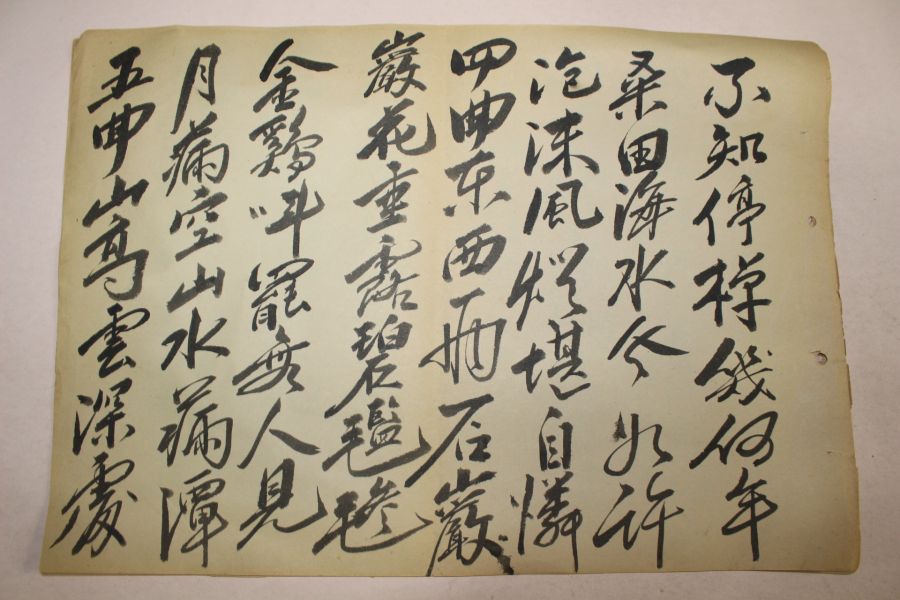 不知停棹幾何年
桑田海水今如許
泡沫風燈堪自憐
四曲東西兩石巖
巖花垂露碧㲯毿
金鷄呌罷無人見
月滿空山水滿潭
五曲山高雲深處